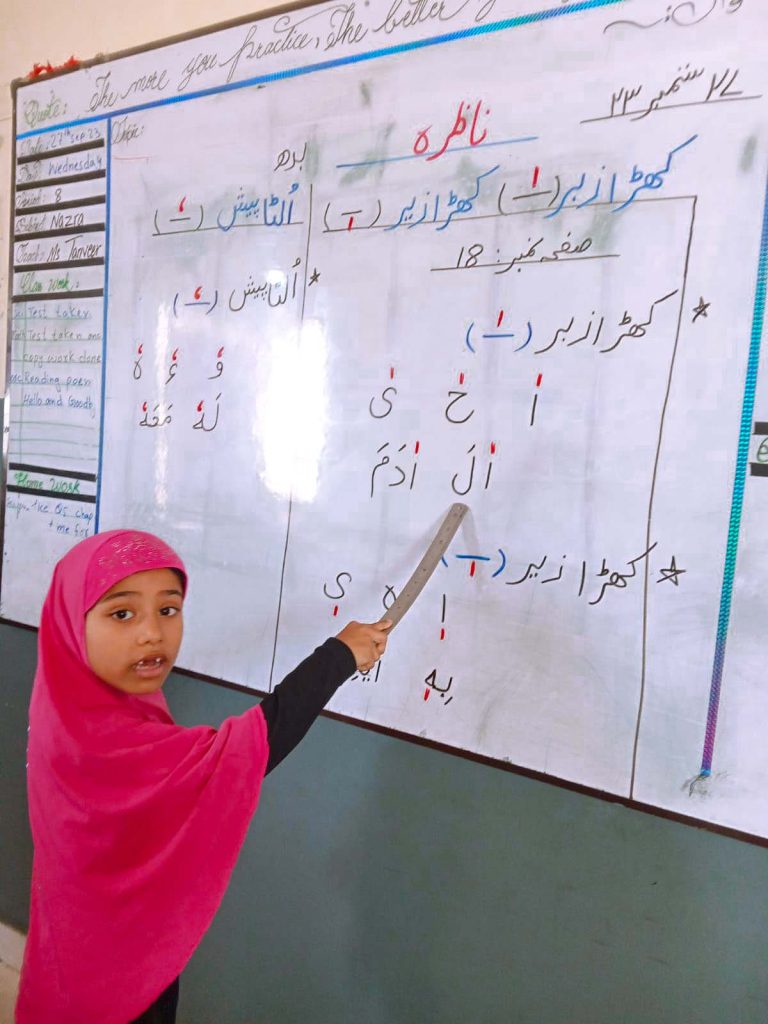 Quote: The more you practice, the better y
Date: 27th Sep 23
Day: Wednesday
Period: 8
Subject: Nazra
Teach: Ms Tanveer
Class work:
Test taken
Test taken and
copy work done
Reading poem
Hello and Goodb
Home Work
Topic:
۲۷ ستمبر ۲۳
بدھ
ناظرہ
کھڑا زبر (ـٰ) کھڑا زیر (ـٖ) اُلٹا پیش (ـٗ)
صفحہ نمبر: 18
☆ کھڑا زبر (ـٰ)
اٰ حٰ یٰ
اٰلَ اٰدَمَ
☆ کھڑا زیر (ـٖ)
اٖ ہٖ یٖ
بِہٖ
* اُلٹا پیش (ـٗ)
وٗ ءٗ ہٗ
لَہٗ مَعَہٗ